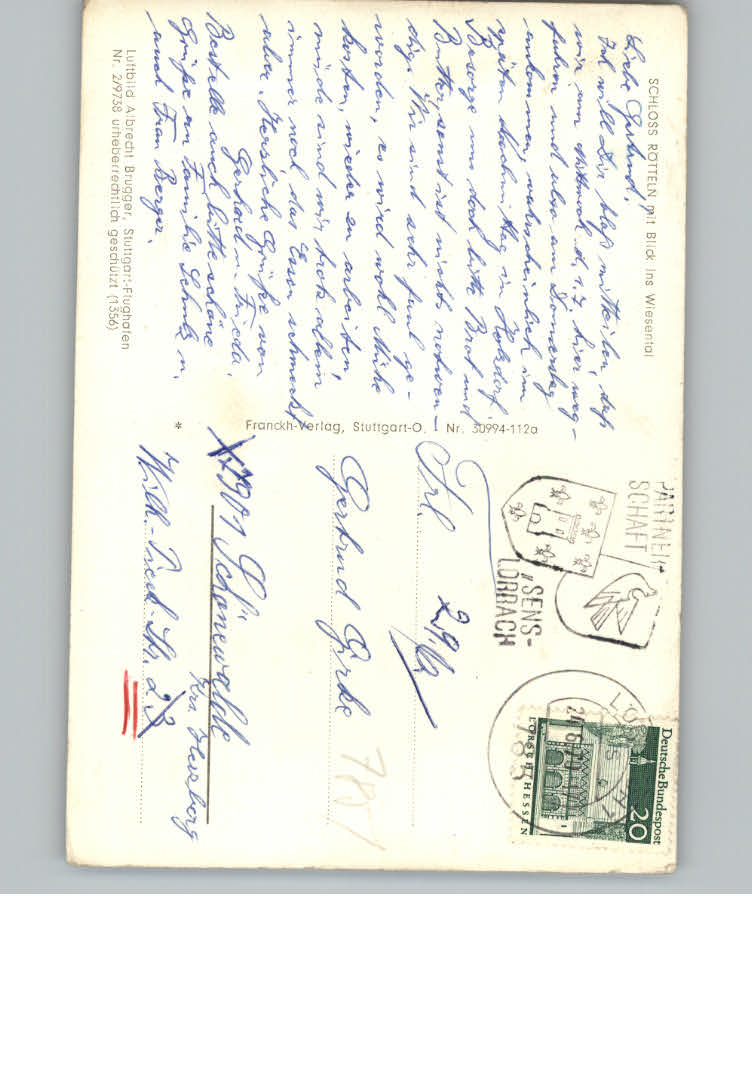 SCHLOSS RÖTTELN mit Blick ins Wiesental
Liebe Gertrud!
Ich will Dir bloß mitteilen, daß
wir am Mittwoch d. 1.7. hier weg-
fahren und also am Donnerstag
ankommen, wahrscheinlich im
späten Nachmittag in
Besorge uns doch bitte Brot und
Butter sonst ist nichts notwen-
dig. Wir sind sehr faul ge-
worden, es wird wohl Mühe
kosten, wieder zu arbeiten,
müde sind wir trotz allem
immer noch, das Essen schmeckt
aber. Herzliche Grüße von
Gerhard u. Frieda.
Bestelle auch bitte schöne
Grüße an Familie Schulz u.
auch Frau Berger.
Luftbild Albrecht Brugger, Stuttgart-Flughafen
Nr. 2/9738 urheberrechtlich geschützt (1356)
* Franckh-Verlag, Stuttgart-O. Nr. 30994-112a
PARTNER-
SCHAFT
SENS-
LÖRRACH
24.6.70
Deutsche Bundespost
20
LORSCH/HESSEN
Frl.
29/6
Gertrud
785
7901 Schönewalde
Krs. Herzberg
Wilh.-Pieck-Str. 23